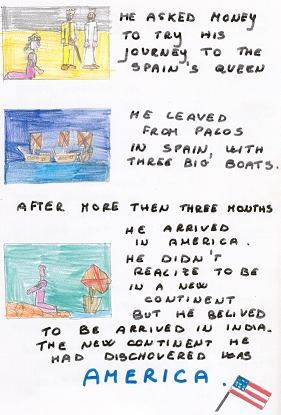 HE ASKED MONEY
TO TRY HIS
JOURNEY TO THE
SPAIN'S QUEEN
HE LEAVED
FROM PALOS
IN SPAIN, WITH
THREE BIG BOATS.
AFTER MORE THEN THREE MONTHS
HE ARRIVED
IN AMERICA.
HE DIDN'T
REALIZE TO BE
IN A NEW
CONTINENT
BUT HE BELIVED
TO BE ARRIVED IN INDIA.
THE NEW CONTINENT HE
HAD DISCHOVERED WAS
AMERICA.